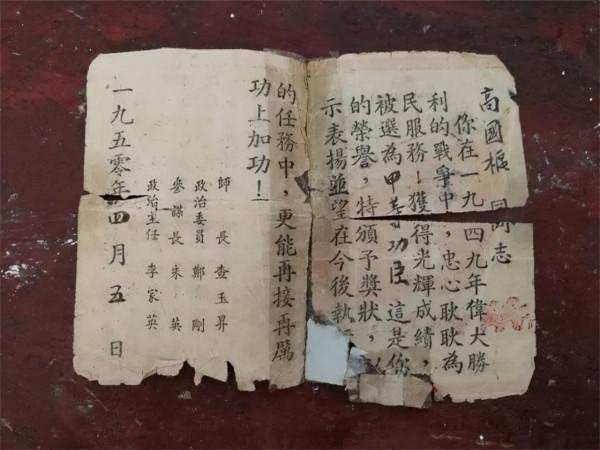 高國樞同志
你在一九四九年偉大勝
利的戰爭中，忠心耿耿為
民服務！獲得光輝成績，
被選為甲等功臣 這是你
的榮譽，特頒予獎狀，以
示表揚並望在今後執
的任務中，更能再接再厲
功上加功！
師 長 查玉昇
政治委員 鄭 剛
參謀長 朱 英
政治主任 李家英
一九五零年四月五日